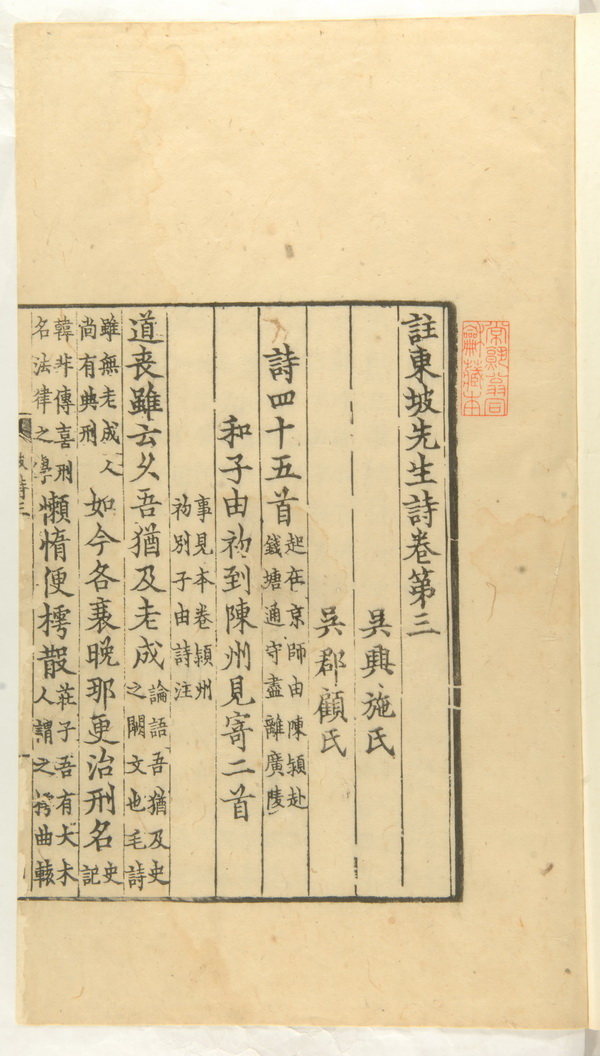 常熟翁同
龢藏本
註東坡先生詩卷第三
吳興施氏
吳郡顧氏
詩四十五首 起在京師由陳潁赴 錢塘通守盡離廣陵
和子由初到陳州見寄二首
事見本卷潁州 初別子由詩注
道喪雖云乆吾猶及老成 論語吾猶及史 之闕文也毛詩
雖無老成人 尚有典刑 如今各衰晚那更治刑名 史 記
韓非傳喜刑 名法律之學 懶惰便樗散 莊子吾有大木 人謂之樗曲轅
詩三